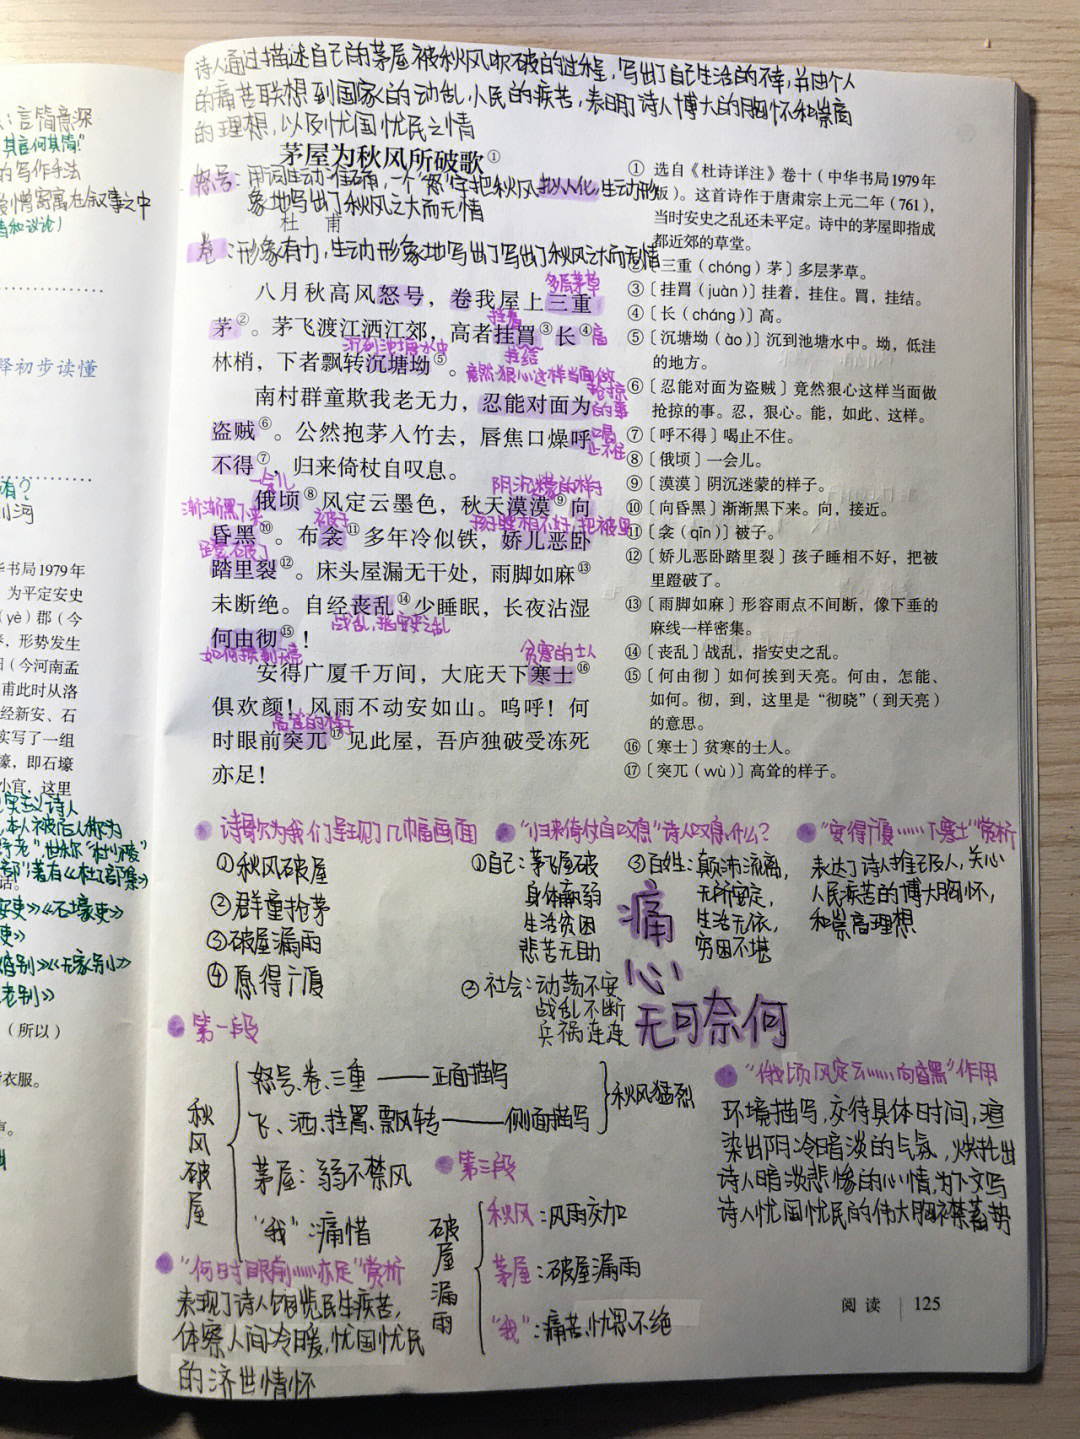 ：言简意深
其言何其简！"
的写作手法
爱憎寓寓在叙事之中
情和议论）
释初步读懂
华书局1979年
为平定安史
（yè）郡（今
形势发生
（今河南孟
甫此时从洛
经新安、石
实写了一组
壕，即石壕
小官。这里
现实主义诗人
本人被后人称为
世称"杜少陵"
著有《杜工部集》
话。
《石壕吏》
《无家别》
老别》
（所以）
衣服。
诗人通过描述自己的茅屋被秋风吹破的过程，写出了自己生活的不幸，并由个人
的痛苦联想到国家的动乱，人民的疾苦，表明了诗人博大的胸怀和崇高
的理想，以及忧国忧民之情
茅屋为秋风所破歌①
怒号：用词生动准确，一个"怒"字把秋风拟人化，生动形
象地写出了秋风之大而无情
杜 甫
卷：形象有力，生动形象地写出了写出了秋风之大而无情
多层茅草
八月秋高风怒号，卷我屋上三重
挂着
茅②。茅飞渡江洒江郊，高者挂罥③长④高
沉到池塘水中 挂结
林梢，下者飘转沉塘坳⑤。
竟然狠心这样当面做
抢掠
南村群童欺我老无力，忍能对面为的事
盗贼⑥。公然抱茅入竹去，唇焦口燥呼喝
止不住
不得⑦，归来倚杖自叹息。
一会儿 阴沉迷蒙的样子
俄顷⑧风定云墨色，秋天漠漠⑨向
渐渐黑下来 被子 孩子睡相不好，把被里
昏黑⑩。布衾⑪多年冷似铁，娇儿恶卧
蹬破了
踏里裂⑫。床头屋漏无干处，雨脚如麻⑬
未断绝。自经丧乱⑭少睡眠，长夜沾湿
战乱，指安史之乱
何由彻⑮！
如何挨到天亮 贫寒的士人
安得广厦千万间，大庇天下寒士⑯
俱欢颜！风雨不动安如山。呜呼！何
高耸的样子
时眼前突兀⑰见此屋，吾庐独破受冻死
亦足！
① 选自《杜诗详注》卷十（中华书局1979年
版）。这首诗作于唐肃宗上元二年（761），
当时安史之乱还未平定。诗中的茅屋即指成
都近郊的草堂。
②〔三重（chóng）茅〕多层茅草。
③〔挂罥（juàn）〕挂着，挂住。罥，挂结。
④〔长（cháng）〕高。
⑤〔沉塘坳（ào）〕沉到池塘水中。坳，低洼
的地方。
⑥〔忍能对面为盗贼〕竟然狠心这样当面做
抢掠的事。忍，狠心。能，如此、这样。
⑦〔呼不得〕喝止不住。
⑧〔俄顷〕一会儿。
⑨〔漠漠〕阴沉迷蒙的样子。
⑩〔向昏黑〕渐渐黑下来。向，接近。
⑪〔衾（qīn）〕被子。
⑫〔娇儿恶卧踏里裂〕孩子睡相不好，把被
里蹬破了。
⑬〔雨脚如麻〕形容雨点不间断，像下垂的
麻线一样密集。
⑭〔丧乱〕战乱，指安史之乱。
⑮〔何由彻〕如何挨到天亮。何由，怎能、
如何。彻，到，这里是"彻晓"（到天亮）
的意思。
⑯〔寒士〕贫寒的士人。
⑰〔突兀（wù）〕高耸的样子。
诗歌为我们呈现了几幅画面
①秋风破屋
②群童抢茅
③破屋漏雨
④愿得广厦
"归来倚仗自叹息"诗人叹息什么？
①自己：茅飞屋破
身体病弱
生活贫困
悲苦无助
②社会：动荡不安
战乱不断
兵祸连连
③百姓：颠沛流离，
无所安定，
生活无依，
穷困不堪
痛
心
无可奈何
"安得广厦……下寒士"赏析
表达了诗人推己及人，关心
人民疾苦的博大胸怀，
和崇高理想
第一段
秋风破屋
怒号、卷、三重——正面描写
飞、洒、挂罥、飘转——侧面描写
秋风猛烈
茅屋：弱不禁风
"我"：痛惜
第三段
破屋漏雨
秋风：风雨交加
茅屋：破屋漏雨
"我"：痛苦，忧思不绝
"俄顷风定云……向昏黑"作用
环境描写，交待具体时间，渲
染出阴冷暗淡的气氛，烘托出
诗人暗淡悲惨的心情，为下文写
诗人忧国忧民的伟大胸襟蓄势
"何时眼前……亦足"赏析
表现了诗人饱览民生疾苦，
体察人间冷暖，忧国忧民
的济世情怀
阅读 125